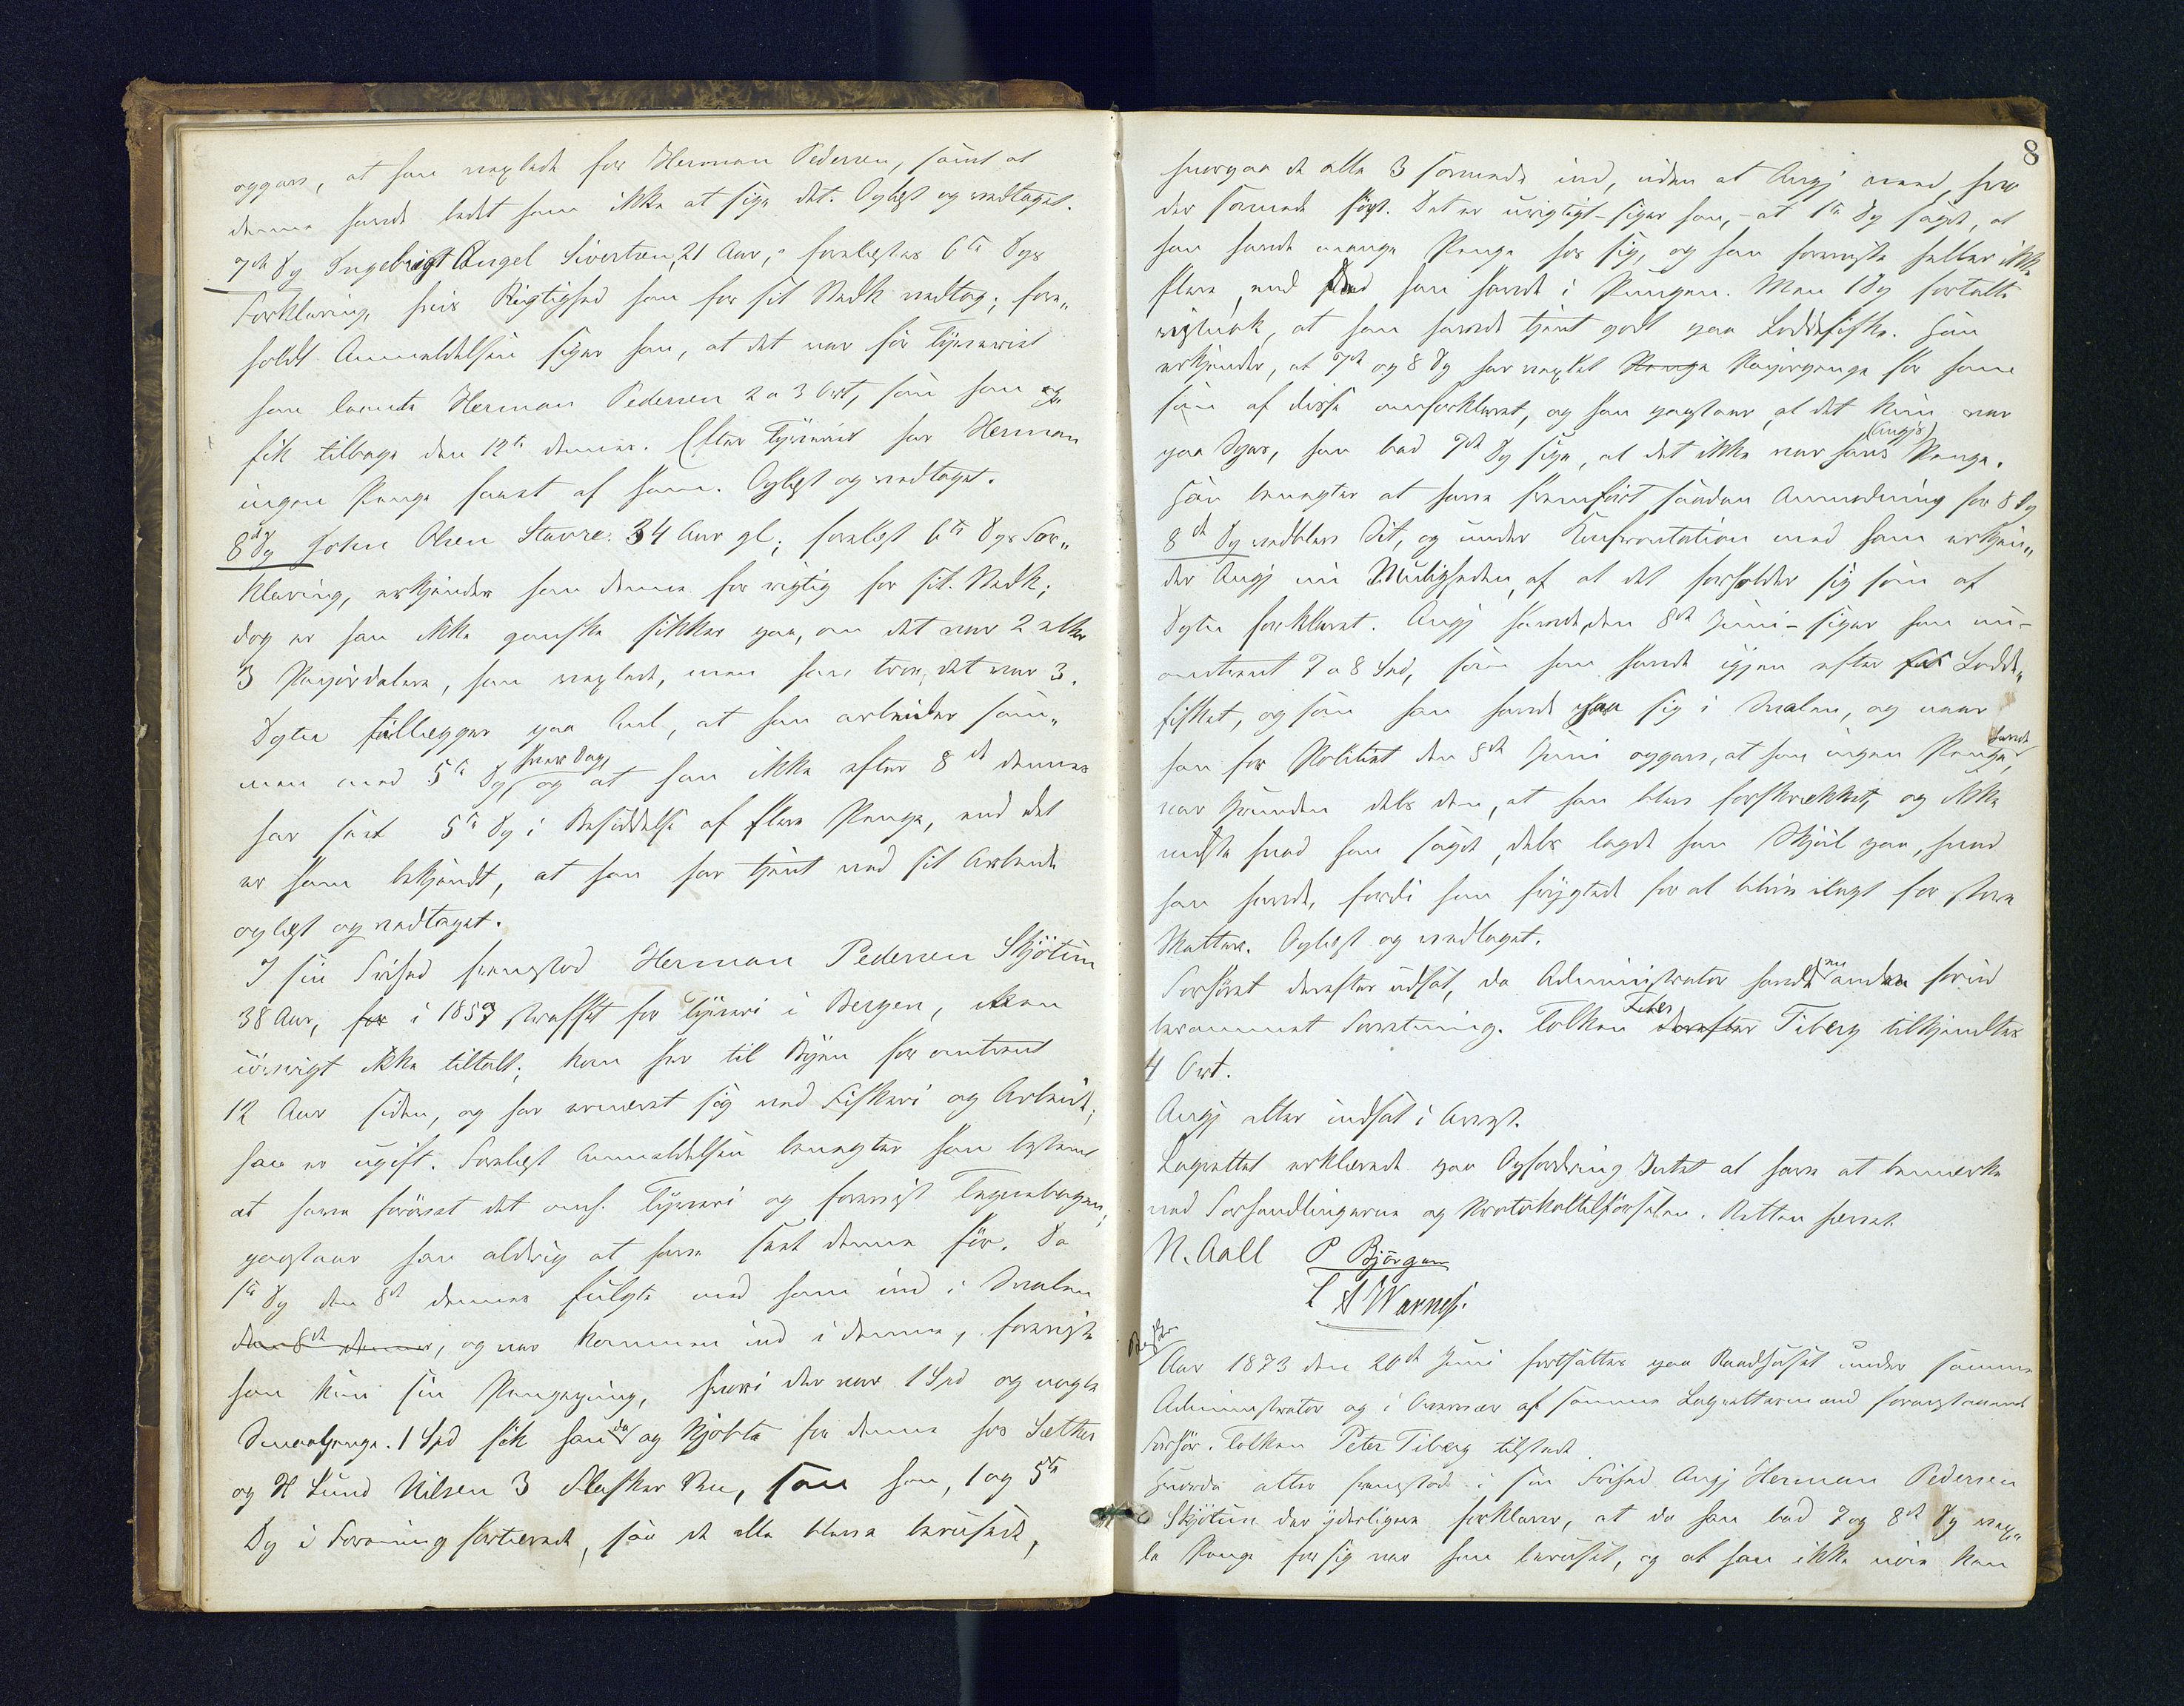 opgav, at han vexlede for Herman Pedersen, samt at
denne havde bedt ham ikke at sige det. Oplæst og vedtaget.
7de Vg Ingebrigt Angel Sivertsen, 21 Aar, forelæstes 6te Vgs
Forklaring, hvis Rigtighed han for sit Vedk vedtog; fore„
holdt Anmeldelsen siger han, at det var før Tyveriet
han laante Herman Pedersen 2 a 3 Ort, som han
fik tilbage den 12te dennes. Efter Tyveriet har Herman
ingen Penge faaet af ham. Oplæst og vedtaget.
8de Vg John Olsen Stavre. 34 Aar gl; forelæst 6te Vgs For„
klaring, erkjender han denne for rigtig for sit Vedk;
dog er han ikke ganske sikker paa, om det var 2 eller
3 Papirdalere, han vexlede, men han tror, det var 3.
Vptr tillægger paa Anl, at han arbeider sam„
men med 5te Vg hver Dag, og at han ikke efter 8de dennes
har seet 5te Vg i Besiddelse af flere Penge, end det
er ham bekjendt, at han har tjent ved sit Arbeide
oplæst og vedtaget.
I sin Frihed fremstod Herman Pedersen Skjötun
38 Aar, for i 1857 straffet for Tyveri i Bergen, men
iövrigt ikke tiltalt; kom her til Byen for omtrent
12 Aar siden, og har ernæret sig ved Fiskeri og Arbeide;
han er ugift. Forelæst Anmeldelsen benegter han bestemt
at have forövet det omh. Tyveri og forevist Tegnebogen,
paastaar han aldrig at have seet denne för. Da
1te Vg den 8de dennes fulgte med ham ind i Svalen
den 8de dennes, og var kommen ind i denne, foreviste
han kun sin Pengepung, hvori der var 1 Spd og nogle
Smaapenge. 1 Spd fik han da og kjöbte for denne hos Sæther
og H Lund Nilsen 3 Flasker Vin, som han, 1 og 5te
Vg i Forening fortærede, saa de alle bleve berusede,
8
hvorpaa de alle 3 sovnede ind, uden at Angj veed, hvo
der sovnede först. Det er urigtigt – siger han, – at 1te Vg sagde, at
han havde mange Penge hos sig, og han foreviste heller ikke
flere, end hvad han havde i Pungen. Men 1 Vg fortalte
rigtnok, at han havde tjent godt paa Loddefiske. Han
erkjender, at 7de og 8 Vg har vexlet Penge Papirpenge for ham
som af disse omforklaret, og han paastaar, at det kun var
paa Spas, han bad 7de Vg sige, at det ikke var hans (Angjs) Penge.
Han benegter at have fremfört saadan Anmodning for 8 Vg
8de Vg vedblev Sit, og under Konfrontation med ham erkjen„
der Angj nu Muligheden, af at det forholder sig som af
Vptr forklaret. Angj havde, den 8de Juni – siger han nu –
omtrent 7 a 8 Spd, som han havde igjen efter Lodde„
fisket, og som han havde paa sig i Svalen, og naar
han for Politiet den 8de Juni opgav, at han ingen Penge havde,
var Grunden dels den, at han blev forskrækket, og ikke
vidste hvad han sagde, dels lagde han Skjul paa, hvad
han havde, fordi han frygtede for at blive ilagt for store
Skatter. Oplæst og vedtaget.
Forhöret derefter udsat, da Administrator havde en anden forud
berammet Forretning. Tolken Peter derefter Tiberg tilkjendtes
4 Ort.
Angj atter indsat i Arrest.
Lagrettet erklærede paa Opfordring Intet at have at bemærke
ved Forhandlingerne og Protokoltilförselen. Retten hævet
N. Aall P Björgum
L A Warness.
Aar 1873 den 20de Juni fortsattes paa Raadhuset under samme
Administrator og i Overvær af samme Lagrettesmænd foranstaaende
Forhör. Tolken Peter Tiberg tilstede.
Hvorda atter fremstod i sin Frihed Angj Herman Pedersen
Skjötun der yderligere forklarer, at da han bad 7 og 8de Vg vex„
le Penge for sig var han beruset, og at han ikke nöie kan